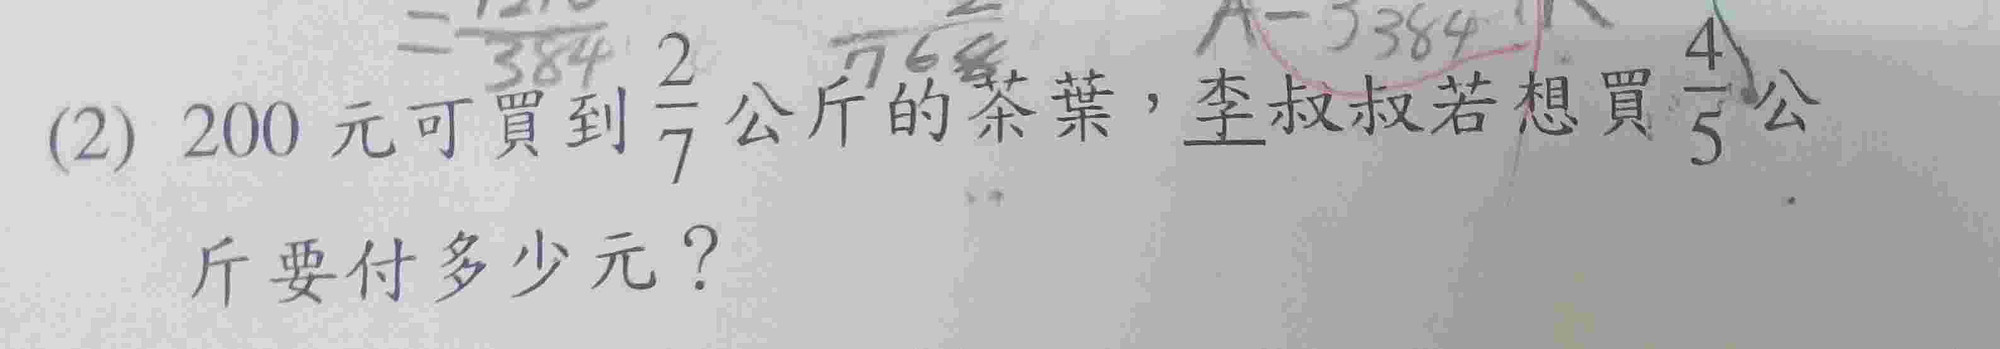 384
768
A-5384
(2) 200 元可買到 2/7 公斤的茶葉，李叔叔若想買 4/5 公
斤要付多少元？